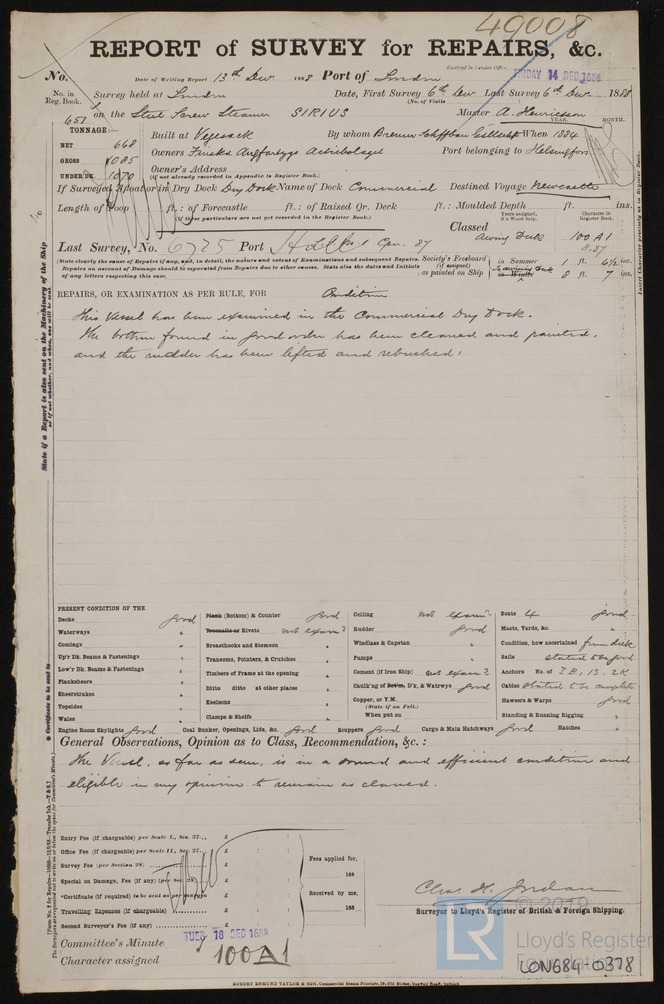 49008
REPORT of SURVEY for REPAIRS, &c.
Received in London Office,
No. Date of Writing Report 13th Decr 1888 Port of London FRIDAY 14 DEC 1888
No. in Reg. Book. Survey held at London Date, First Survey 6th Decr Last Survey 6th Decr 1888
(No. of Visits
651 on the Steel Screw Steamer SIRIUS Master A. Henricsson
TONNAGE:— YEAR. MONTH.
NET 668 Built at Vegesack By whom Bremer Schiffbau Gellsch When 1884
GROSS 1085 Owners Finska Angfartygs Actiebolaget Port belonging to Helsingfors
UNDER DK. 1070 Owner's Address
(If not already recorded in Appendix to Register Book.)
If Surveyed Afloat or in Dry Dock Dry Dock Name of Dock Commercial Destined Voyage Newcastle
Length of Poop ft.: of Forecastle ft.: of Raised Qr. Deck ft.: Moulded Depth ft. ins.
(If these particulars are not yet recorded in the Register Book.)
Years assigned, if a Wood Ship. Character in Register Book.
Classed Awning Deck 100 A1
8.87
Last Survey, No. 6725 Port
(State clearly the cause of Repairs if any, and, in detail, the nature and extent of Examinations and subsequent Repairs.
Repairs on account of Damage should be separated from Repairs due to other causes. State also the dates and Initials
of any letters respecting this case.
Society's Freeboard (if assigned) as painted on Ship
in Summer 1 ft. 4½ ins.
in Winter 0 ft. 7 ins.
REPAIRS, OR EXAMINATION AS PER RULE, FOR Condition
This Vessel has been examined in the Commercial Dry Dock.
The bottom found in good order has been cleaned and painted,
and the rudder has been lifted and rebushed.
State if a Report is also sent on the Machinery of the Ship
or if not whether, and when, one will be sent.
Insert Character precisely as in Register Book.
PRESENT CONDITION OF THE
Decks good
Waterways "
Comings "
Up'r Dk. Beams & Fastenings "
Low'r Dk. Beams & Fastenings "
Planksheers "
Sheerstrakes "
Topsides "
Wales "
Plank (Bottom) & Counter good
Treenails or Rivets not exam?
Breasthooks and Stemson "
Transoms, Pointers, & Crutches "
Timbers of Frame at the opening "
Ditto ditto at other places "
Keelsons "
Clamps & Shelfs "
Ceiling not exam?
Rudder good
Windlass & Capstan "
Pumps "
Cement (if Iron Ship) not exam?
Caulk'ng of Bottm, D'k, & Watrwys good
Copper, or Y.M.
(State if on Felt.)
When put on
Boats 4 good
Masts, Yards, &c. "
Condition, how ascertained from deck
Sails stated to be good
Anchors No. of 3B, 1S, 2K
Cables Stated to be complete
Hawsers & Warps good
Standing & Running Rigging "
Engine Room Skylights good Coal Bunker, Openings, Lids, &c. good Scuppers good Cargo & Main Hatchways good Hatches "
General Observations, Opinion as to Class, Recommendation, &c.:
The Vessel, as far as seen, is in a sound and efficient condition and
eligible in my opinion to remain as classed.
Certificate to be sent to
Entry Fee (if chargeable) per Scale I., Sec. 27... £ : :
Office Fee (if chargeable) per Scale II., Sec. 27... £ : :
Survey Fee (per Section 28) £ : :
Special on Damage, Fee (if any) (per Sec. 28) £ : :
*Certificate (if required) to be sent as per margin £ : :
Travelling Expenses (if chargeable) £ : :
Second Surveyor's Fee (if any) £ : :
Fees applied for,
188
Received by me,
188
Chas. H. Jordan
Surveyor to Lloyd's Register of British & Foreign Shipping.
Committee's Minute TUES 18 DEC 1888
Character assigned 100A1
© 2019
LR
Lloyd's Register
Foundation
LON684-0378
ROBERT EDMUND TAYLOR & SON, Commercial Steam Printers, 19, Old Street, Goswell Road, London